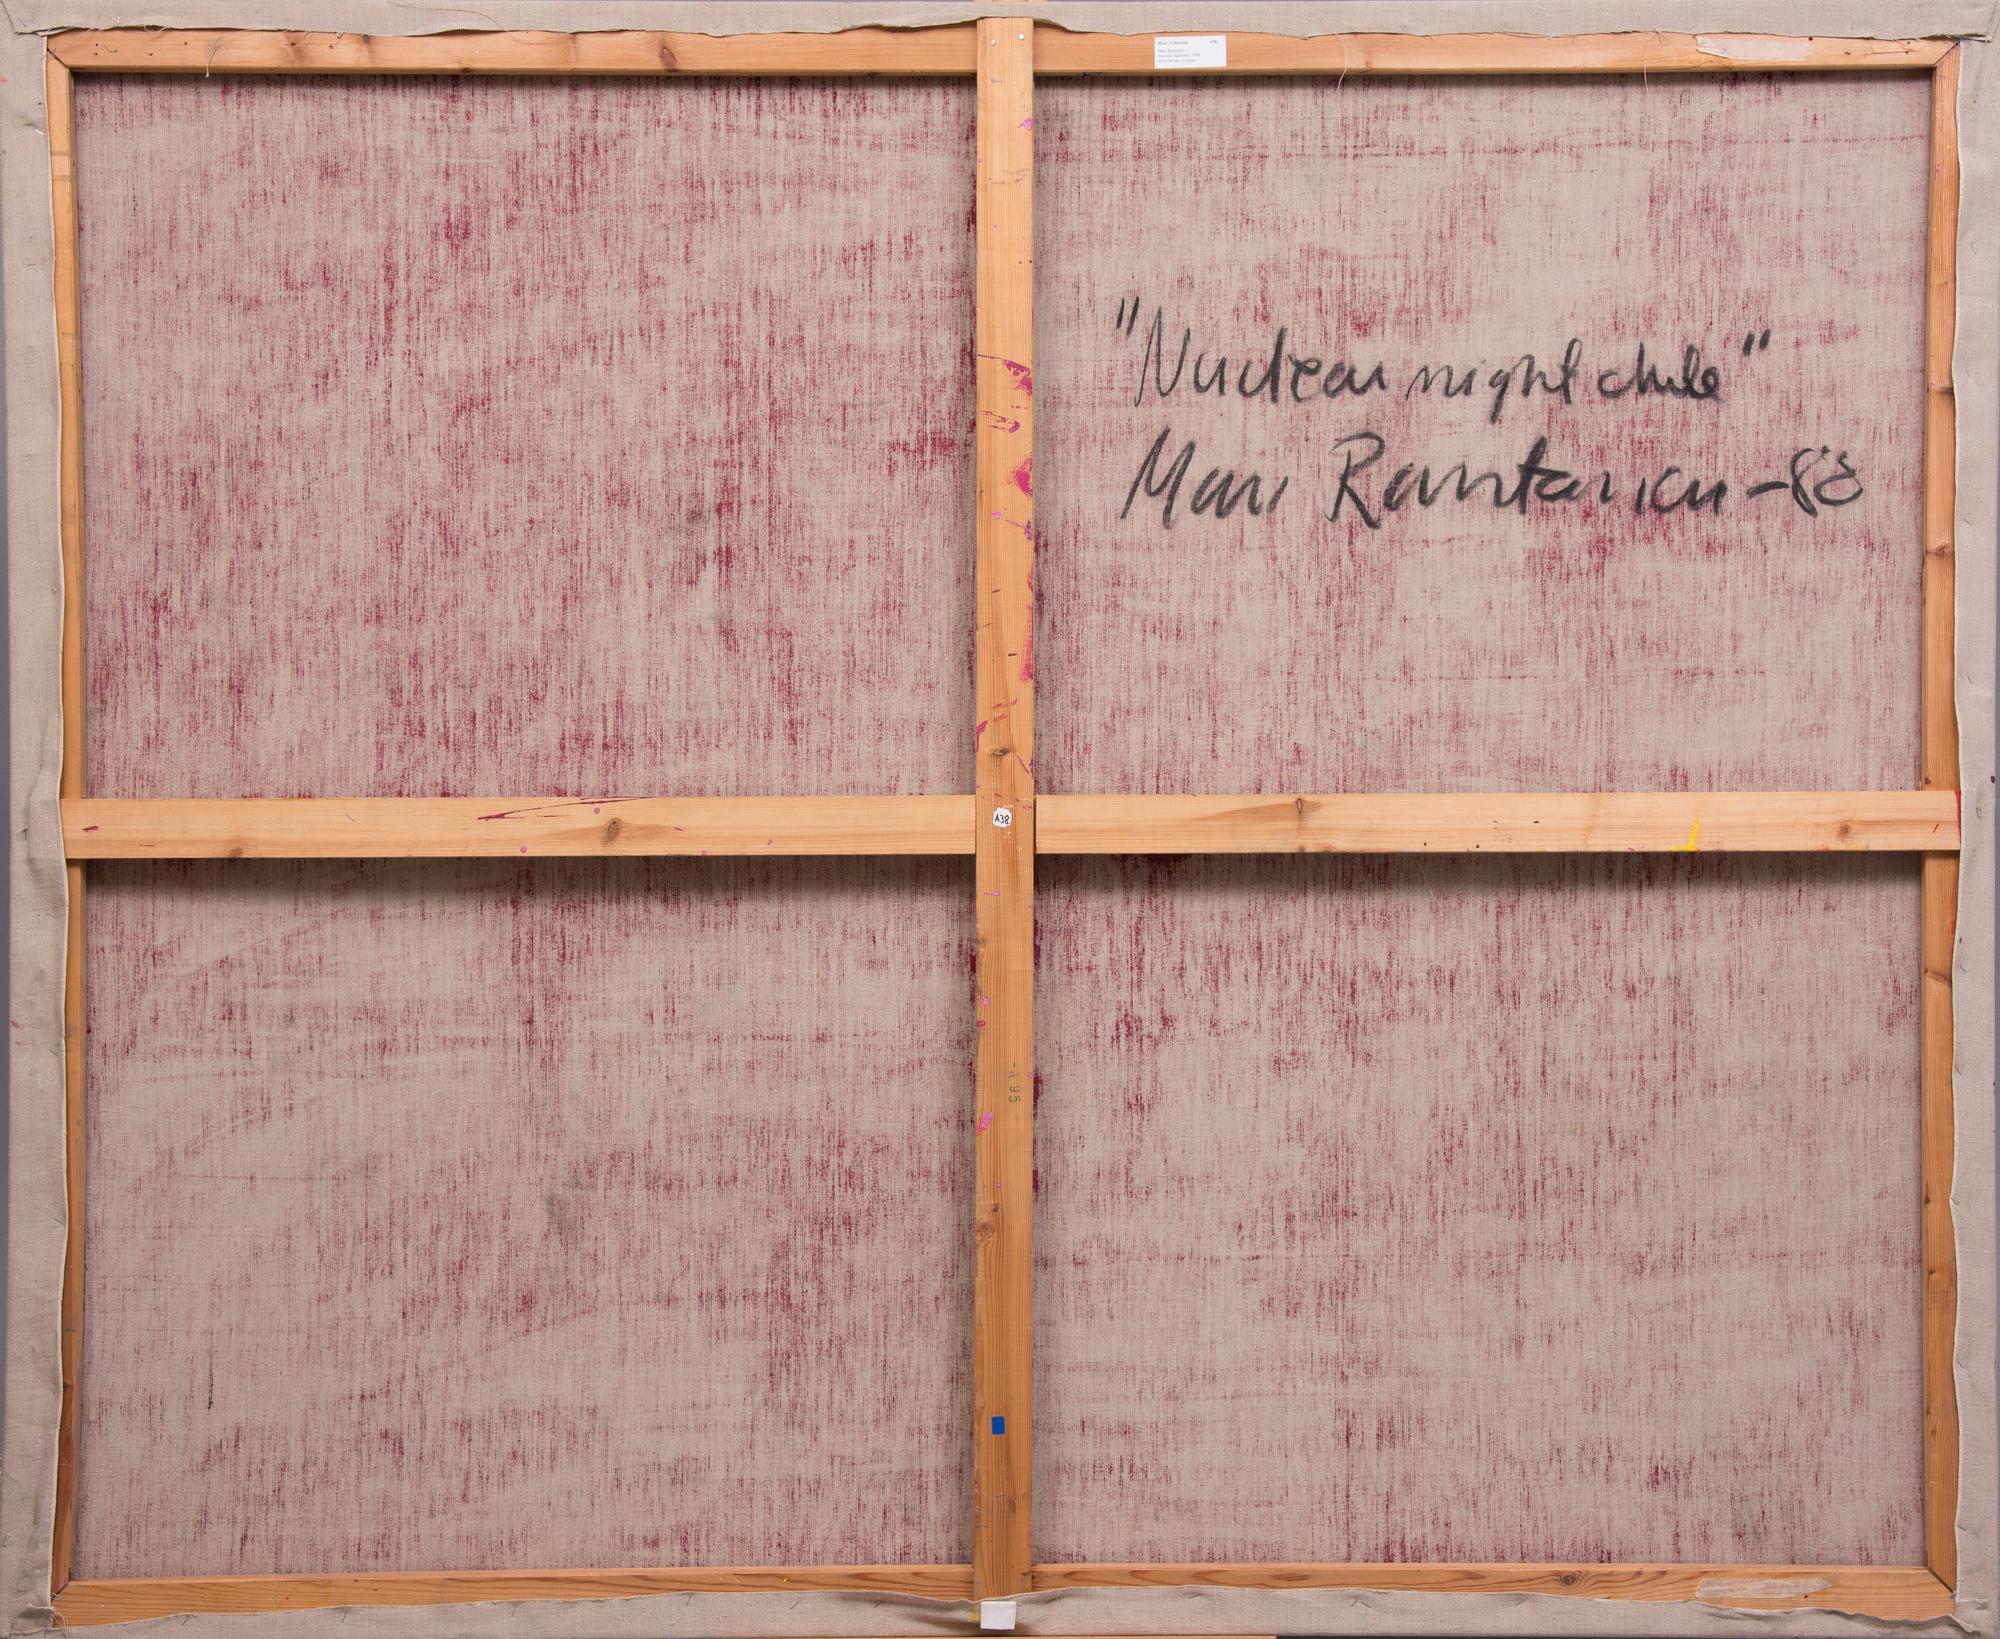 MAC Collection A38.
"Nuclear night chile"
Mari Rantanen -88
A38
-195